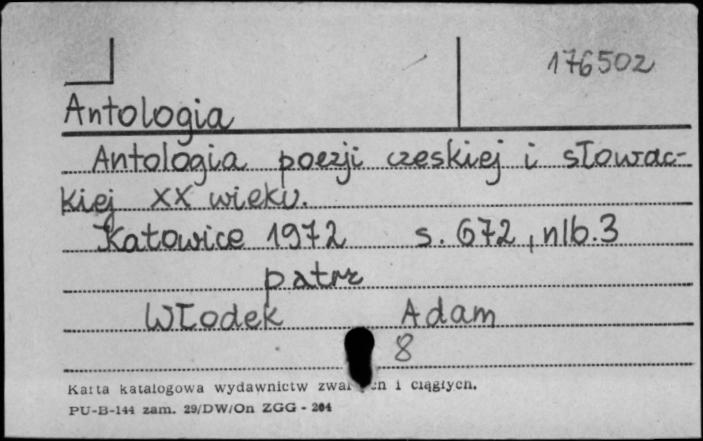 176502
Antologia
Antologia poezji czeskiej i słowac-
kiej XX wieku.
Katowice 1972 s. 672, nlb. 3
patrz
Włodek Adam
8
Karta katalogowa wydawnictw i ciągłych.
PU-B-144 zam. 29/DW/On ZGG - 204